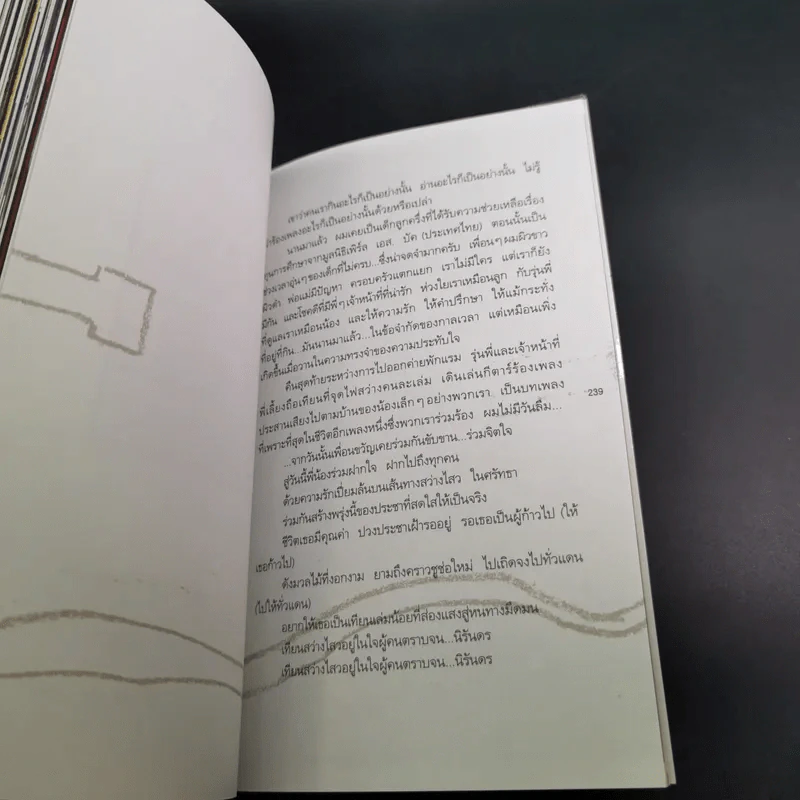 เขาว่าคนเรากินอะไรก็เป็นอย่างนั้น อ่านอะไรก็เป็นอย่างนั้น ไม่รู้
ว่าร้องเพลงอะไรก็เป็นอย่างนั้นด้วยหรือเปล่า
นานมาแล้ว ผมเคยเป็นเด็กลูกครึ่งที่ได้รับความช่วยเหลือเรื่อง
ทุนการศึกษาจากมูลนิธิเพิร์ล เอส. บัค (ประเทศไทย) ตอนนั้นเป็น
ช่วงเวลาอุ่นๆ ของเด็กที่ไม่ครบ...ซึ่งน่าจดจำมากครับ เพื่อนๆ ผมผิวขาว
ผิวดำ พ่อแม่มีปัญหา ครอบครัวแตกแยก เราไม่มีใคร แต่เราก็ยัง
มีกัน และโชคดีที่มีพี่ๆ เจ้าหน้าที่ที่น่ารัก ห่วงใยเราเหมือนลูก กับรุ่นพี่
ที่ดูแลเราเหมือนน้อง และให้ความรัก ให้คำปรึกษา ให้แม้กระทั่ง
ที่อยู่ที่กิน...มันนานมาแล้ว...ในข้อจำกัดของกาลเวลา แต่เหมือนเพิ่ง
เกิดขึ้นเมื่อวานในความทรงจำของความประทับใจ
คืนสุดท้ายระหว่างการไปออกค่ายพักแรม รุ่นพี่และเจ้าหน้าที่
พี่เลี้ยงถือเทียนที่จุดไฟสว่างคนละเล่ม เดินเล่นกีตาร์ร้องเพลง
ประสานเสียงไปตามบ้านของน้องเล็กๆ อย่างพวกเรา เป็นบทเพลง
ที่เพราะที่สุดในชีวิตอีกเพลงหนึ่งซึ่งพวกเราร่วมร้อง ผมไม่มีวันลืม...
239
...จากวันนั้นเพื่อนขวัญเคยร่วมกันขับขาน...ร่วมจิตใจ
สู่วันนี้พี่น้องร่วมฝากใจ ฝากไปถึงทุกคน
ด้วยความรักเปี่ยมล้นบนเส้นทางสว่างไสว ในศรัทธา
ร่วมกันสร้างพรุ่งนี้ของประชาที่สดใสให้เป็นจริง
ชีวิตเธอมีคุณค่า ปวงประชาเฝ้ารออยู่ รอเธอเป็นผู้ก้าวไป (ให้
เธอก้าวไป)
ดังมวลไม้ที่งอกงาม ยามถึงคราวชูช่อใหม่ ไปเถิดจงไปทั่วแดน
(ไปให้ทั่วแดน)
อยากให้เธอเป็นเทียนเล่มน้อยที่ส่องแสงสู่หนทางมืดมน
เทียนสว่างไสวอยู่ในใจผู้คนตราบจน...นิรันดร
เทียนสว่างไสวอยู่ในใจผู้คนตราบจน...นิรันดร